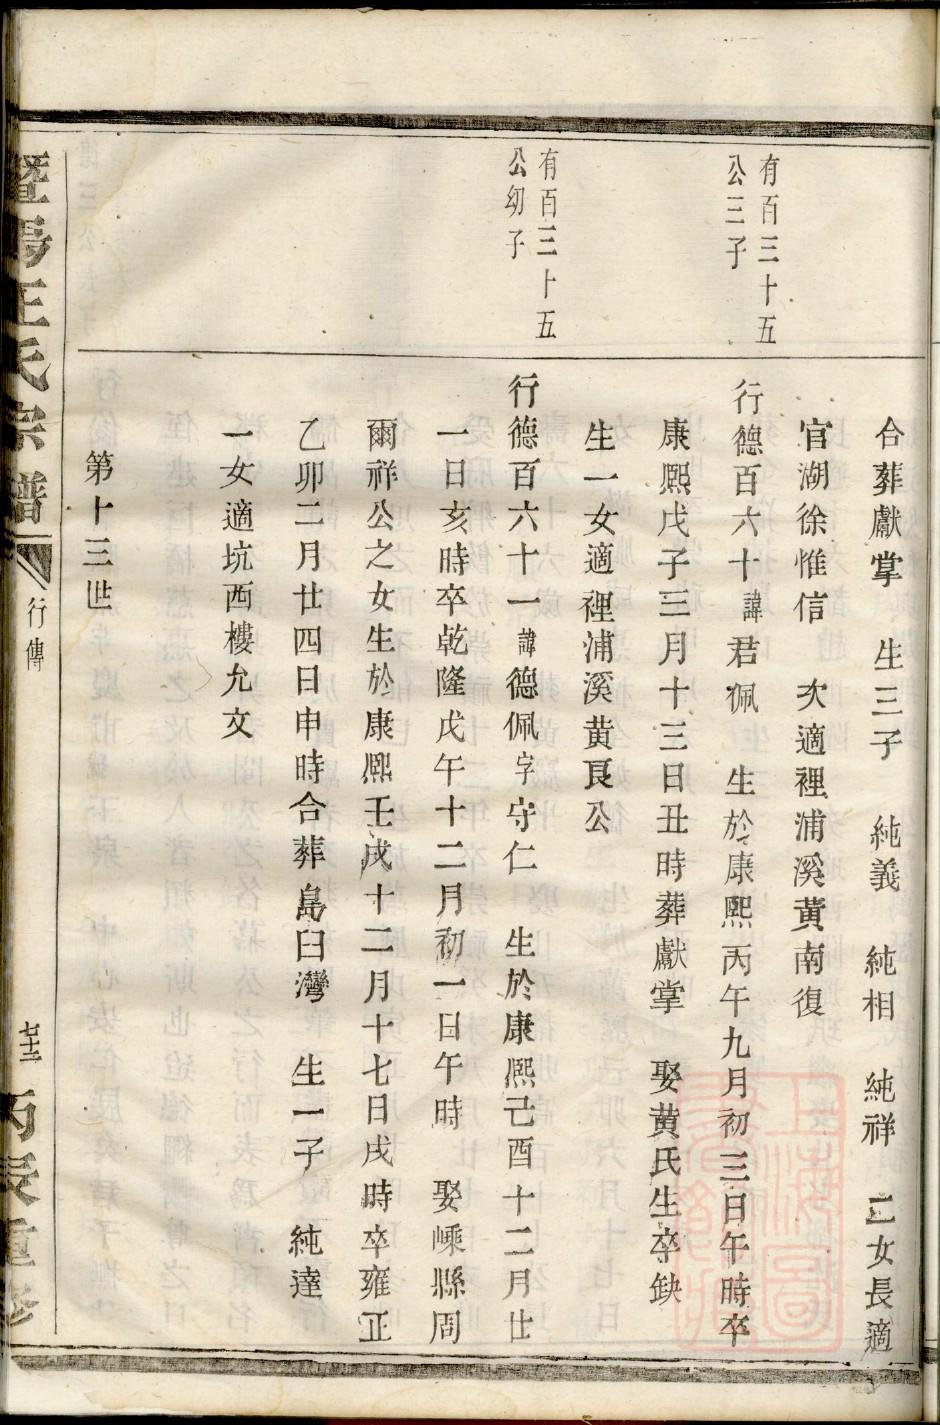 合葬獻掌　生三子　純義　純相　純祥　二女長適
官湖徐惟信　次適裡浦溪黃南復
有百三十五
公三子
行德百六十諱君佩　生於康熙丙午九月初三日午時卒
康熙戊子三月十三日丑時葬獻掌　娶黃氏生卒缺
生一女適裡浦溪黃艮公
有百三十五
公幼子
行德百六十一諱德佩字守仁　生於康熙己酉十二月廿
一日亥時卒乾隆戊午十二月初一日午時　娶嵊縣周
爾祥公之女生於康熙壬戌十二月十七日戌時卒雍正
乙卯二月廿四日申時合葬島臼灣　生一子　純達
一女適坑西樓允文
第十三世
暨陽王氏宗譜
行傳
丙辰重修